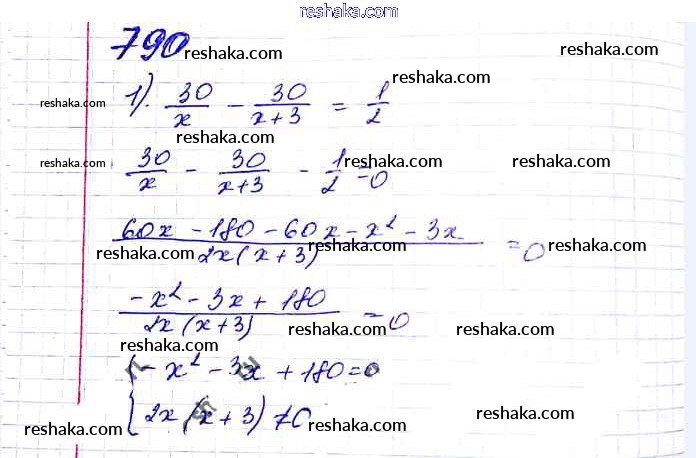 reshaka.com
790 reshaka.com reshaka.com
reshaka.com 1). 30/x - 30/(x+3) = 1/2 reshaka.com
reshaka.com
reshaka.com 30/x - 30/(x+3) - 1/2 = 0 reshaka.com reshaka.com
reshaka.com reshaka.com
(60x - 180 - 60x - x² - 3x)/(2x(x+3)) = 0
reshaka.com reshaka.com reshaka.com
(-x² - 3x + 180)/(2x(x+3)) = 0
reshaka.com reshaka.com
reshaka.com
{ -x² - 3x + 180 = 0 reshaka.com
2x(x+3) ≠ 0 reshaka.com
reshaka.com
reshaka.com